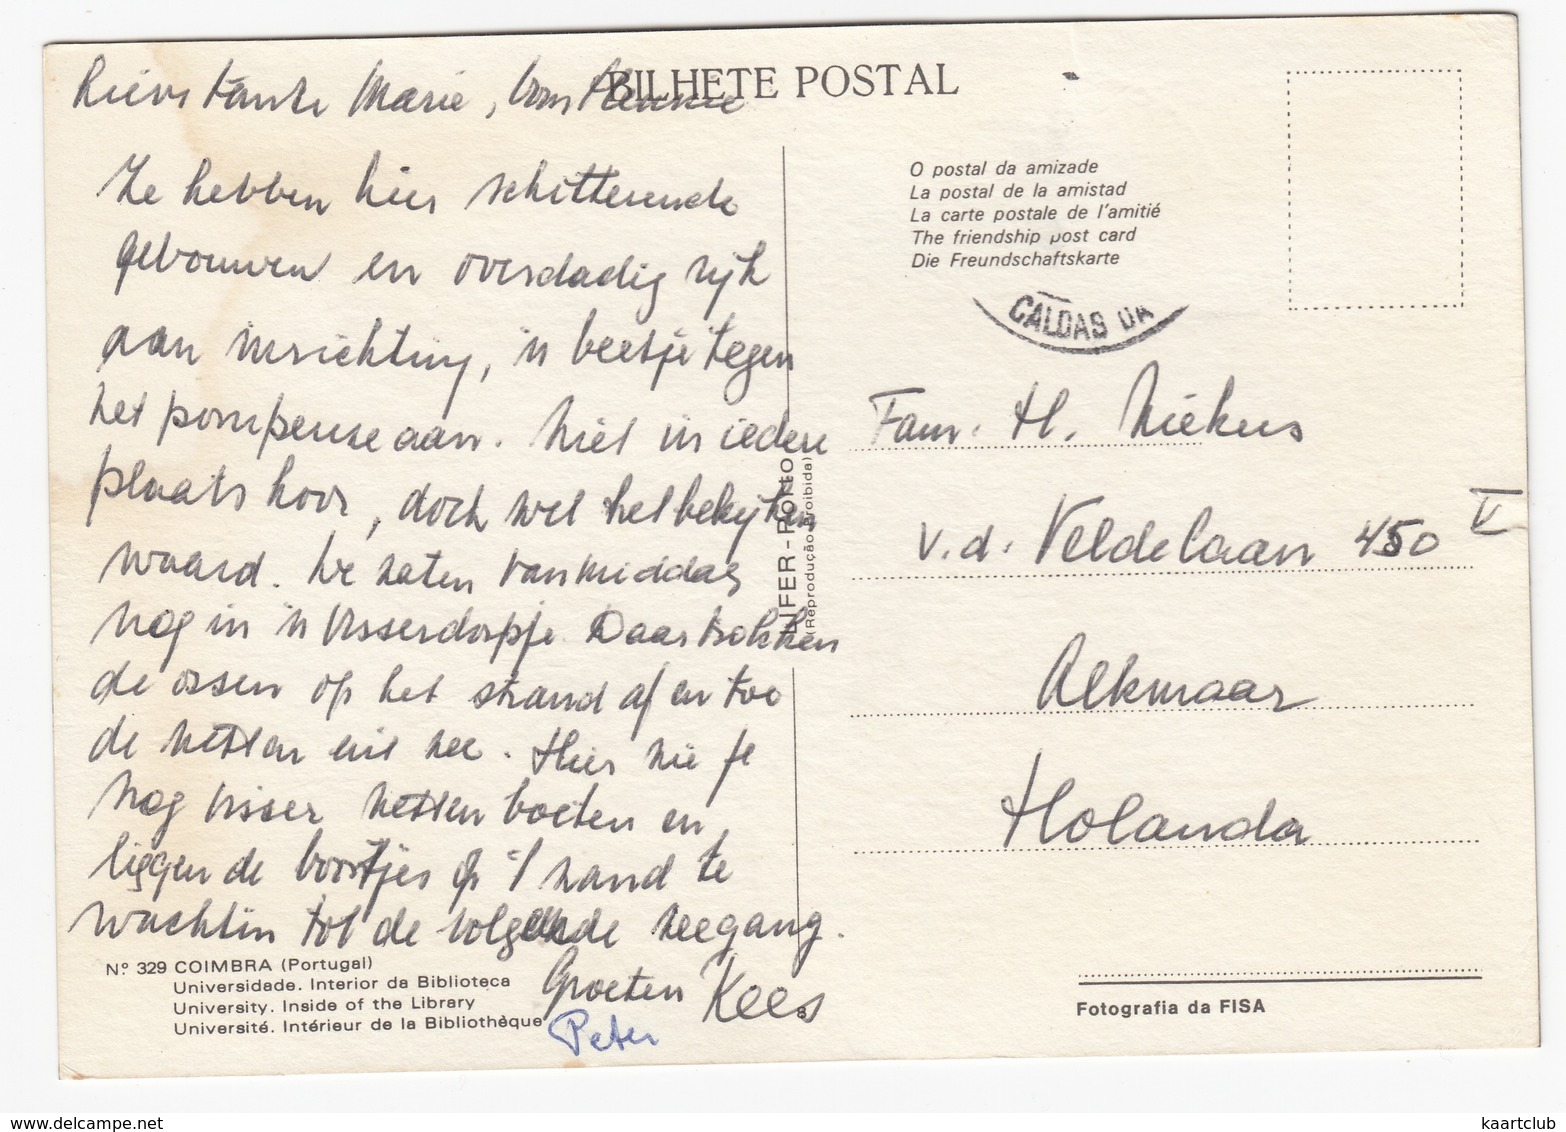 BILHETE POSTAL
Lieve tante Marie, oom Hennie
Ze hebben hier schitterende
gebouwen en overdadig rijk
aan inrichting, 'n beetje tegen
het pompeuse aan. Niet in iedere
plaats hoor, doch wel het bekijken
waard. We zaten vanmiddag
nog in 'n vissersdorpje. Daar trokken
de ossen op het strand af en toe
de netten uit zee. Hier zie je
nog visser netten boeten en
liggen de bootjes op 't zand te
wachten tot de volgende zeegang.
Groeten Kees
Peter
Nº 329 COIMBRA (Portugal)
Universidade. Interior da Biblioteca
University. Inside of the Library
Université. Intérieur de la Bibliothèque
LIFER - PORTO
(Reprodução Proibida)
O postal da amizade
La postal de la amistad
La carte postale de l'amitié
The friendship post card
Die Freundschaftskarte
CALDAS DA
Fam. H. Niekus
v.d. Veldelaan 450 V
Alkmaar
Holanda
Fotografia da FISA
www.delcampe.net
kaartclub